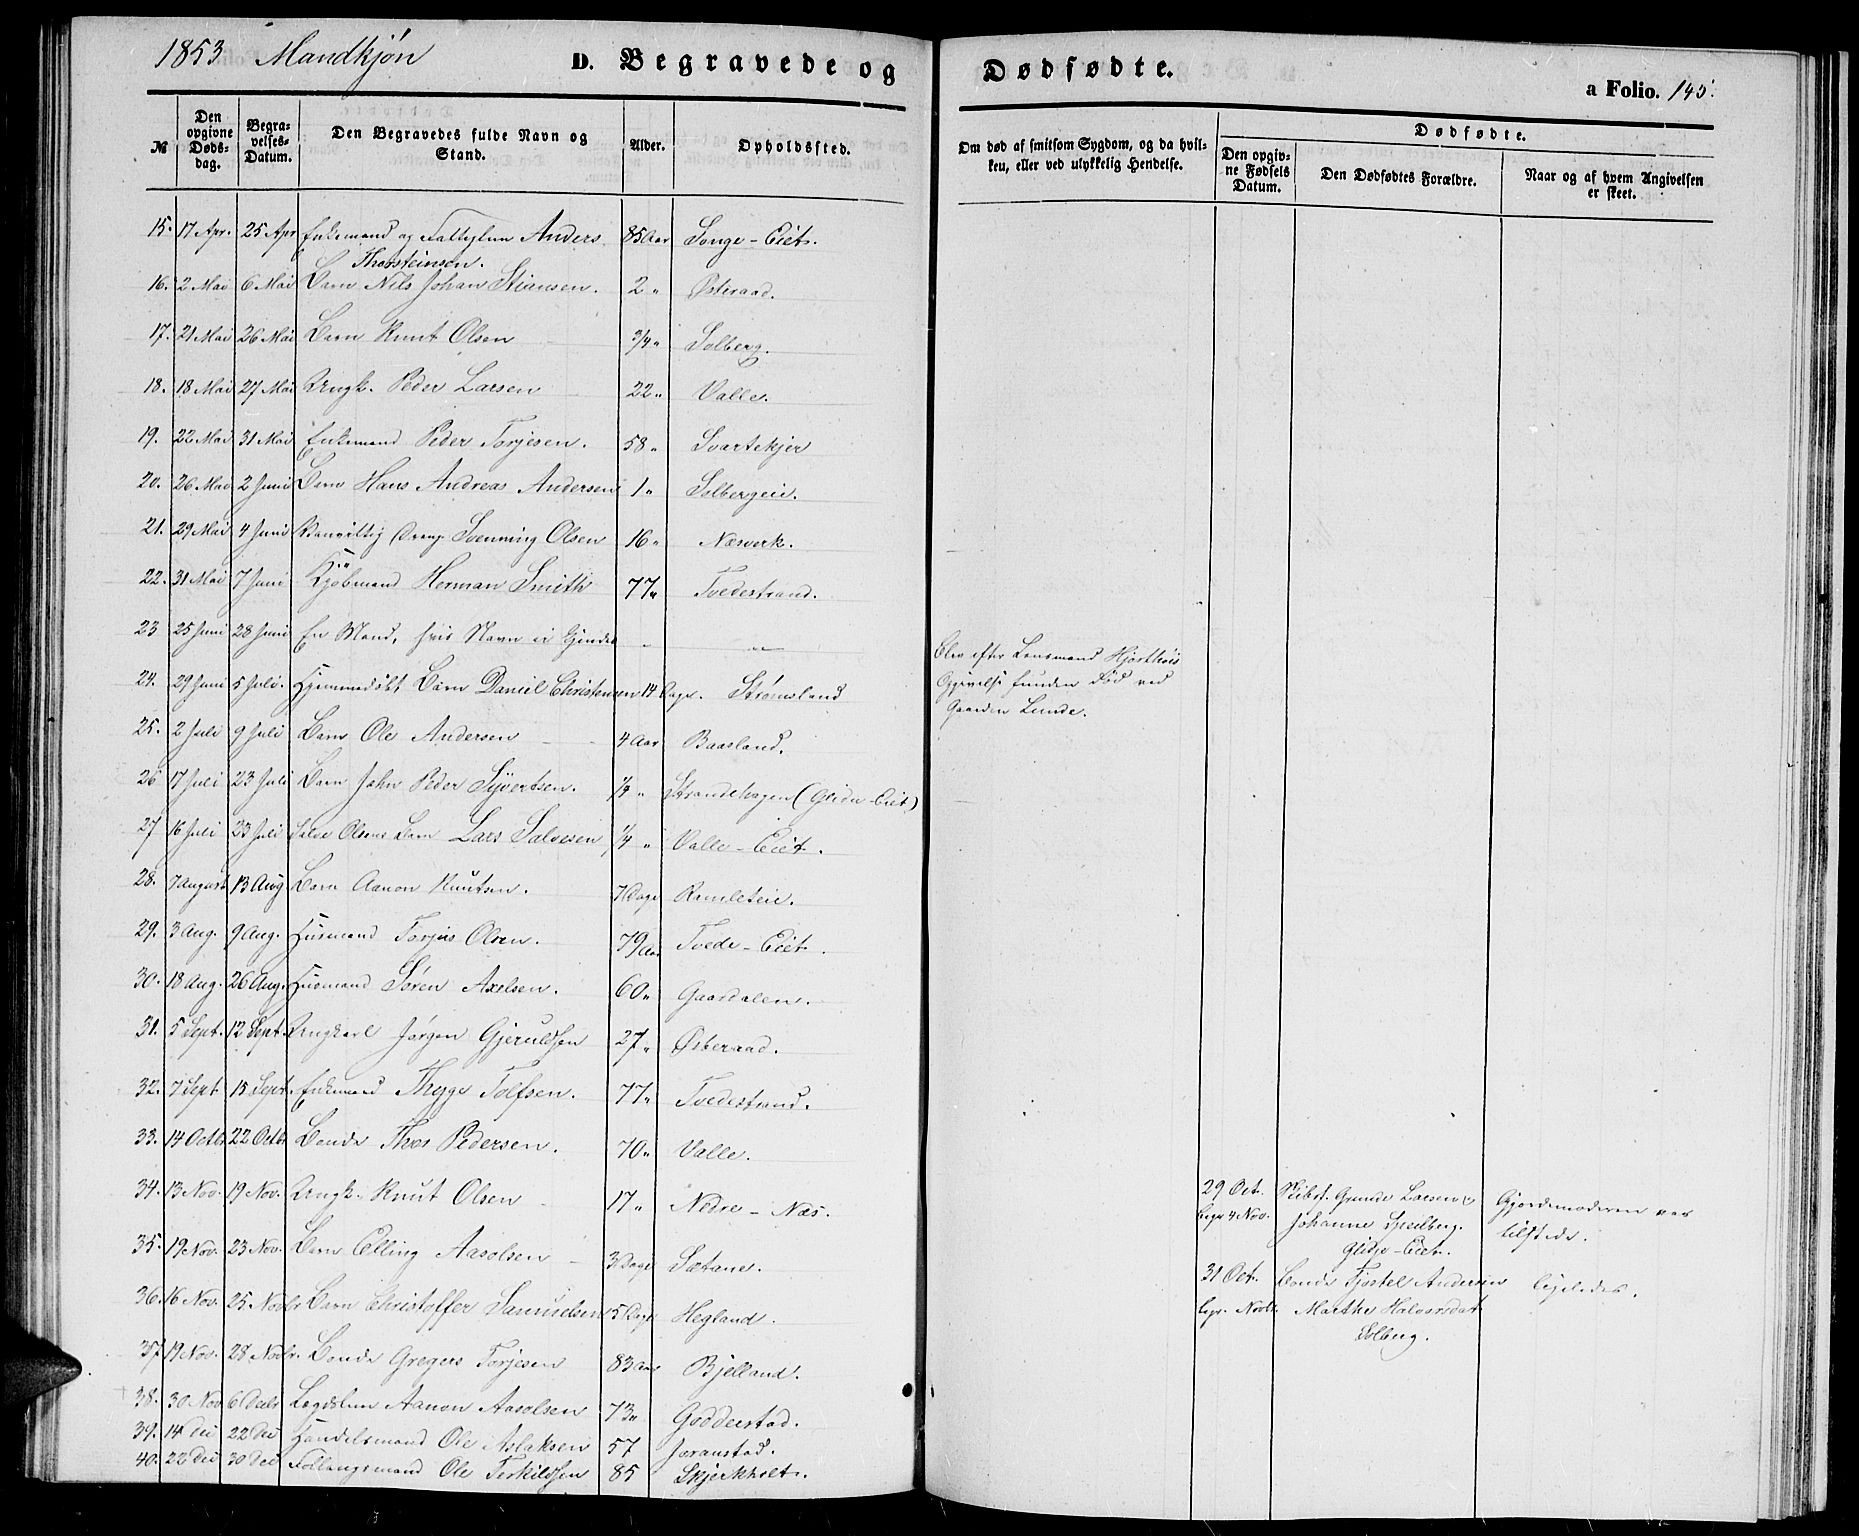 1853 Mandkjøn
D. Begravede og Dødfødte.
a Folio. 145.
№
Den opgivne Dødsdag.
Begravelses-Datum.
Den Begravedes fulde Navn og Stand.
Alder.
Opholdssted.
Om død af smitsom Sygdom, og da hvilken, eller ved ulykkelig Hendelse.
Dødfødte.
Den opgivne Fødsels Datum.
Den Dødfødtes Forældre.
Naar og af hvem Angivelsen er skeet.
15. 17 Apr. 25 Apr Enkemand og Anders 85 Aar Songe-Eiet.
Thorsteinsen.
16. 2 Mai 6 Mai Barn Nils Johan Stiansen. 2 " Østeraad.
17. 21 Mai 26 Mai Barn Knut Olsen 3/4 " Solberg.
18. 18 Mai 27 Mai Ungk. Peder Larsen 22 " Valle.
19. 22 Mai 31 Mai Enkemand Peder Torjesen. 58 " Svartekjer
20. 26 Mai 2 Juni Barn Hans Andreas Andersen 1 " Solbergeie.
21. 29 Mai 4 Juni Vanvittig Dreng Svenning Olsen 16 " Næsverk.
22. 31 Mai 7 Juni Kjøbmand Herman Smith 77 " Tvedestrand.
23 25 Juni 28 Juni En Mand, hvis Navn ei kjendes " "
Blev efter Lensmand Hjorthøis
Opgivelse funden død ved
Gaarden Lunde.
24. 29 Juni 5 Juli. Hjemmedøbt Barn Daniel Christensen 14 Dage. Strømsland
25. 2 Juli 9 Juli Barn Ole Andersen 4 Aar Baasland.
26 17 Juli 23 Juli Barn John Peder Syvertsen. 1/4 " Strandhagen (Glidje-Eiet)
27 16 Juli 23 Juli Salve Olsens Barn Lars Salvesen 1/4 " Valle-Eiet.
28. 7 August 13 Aug Barn Aanon Knutsen. 7 Dage Ramleteie.
29. 3 Aug. 9 Aug. Husmand Torjus Olsen. 79 Aar Tvede-Eiet.
30. 18 Aug. 26 Aug. Husmand Søren Axelsen. 60 " Gaasdalen.
31. 5 Sept. 12 Sept. Ungkarl Jørgen Gjeruldsen 27 " Østeraad.
32. 7 Sept 15 Sept. Enkemand Thyge Tolfsen. 77 " Tvedestrand.
33. 14 Octbr 22 Octbr Bonde Thor Pedersen. 70 " Valle.
34. 13 Nov. 19 Nov. Ungk. Knut Olsen 17 " Nedre-Næs.
29 Oct. Gunde Larsen & Gjordemoderen var
begr 4 Nov. Johanne Speilberg. tilstede.
Glidje-Eiet.
35. 19 Nov. 23 Nov. Barn Elling Aasolsen 3 Dage Sætane.
31 Oct. Bonde Tjøstel Andersen ligeledes.
begr. Novbr. Marthe Halvorsdat
Solberg.
36. 16 Nov. 25 Novbr Barn Christoffer Samuelsen 5 Dage Hegland.
37. 19 Nov. 28 Novbr. Bonde Gregers Torjesen 83 Aar Bjelland.
38. 30 Nov 6 Decbr Lægdslem Aanon Aasolsen 73 " Godderstad.
39. 14 Dec 22 Dec Handelsmand Ole Aslaksen 57 Joranstad.
40. 22 Dec 30 Dec Ole Terkildsen 85 Skjerkholt.